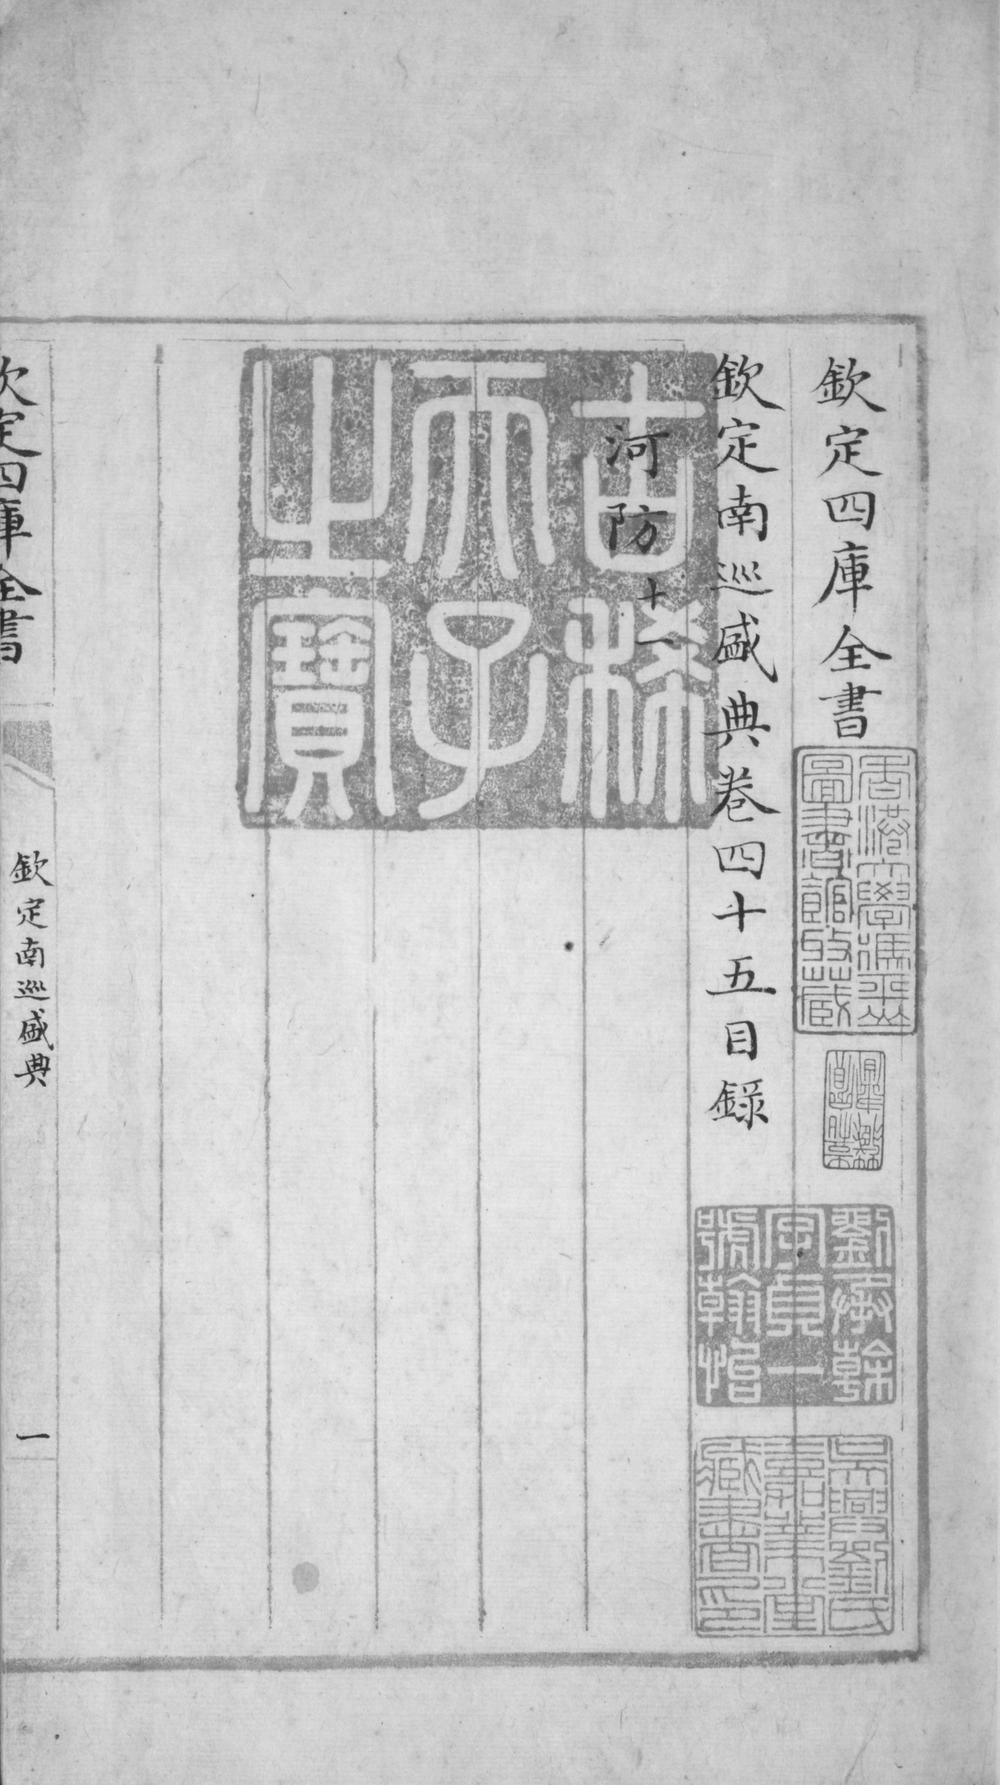 欽定四庫全書
香港大學馮平山
圖書館𠁅藏
劉承幹
字貞一
號翰怡
吳興劉氏
嘉業堂
藏書印
欽定南巡盛典卷四十五目錄
河防十一
古稀
天子
之寶
欽定四庫全書
欽定南巡盛典
一